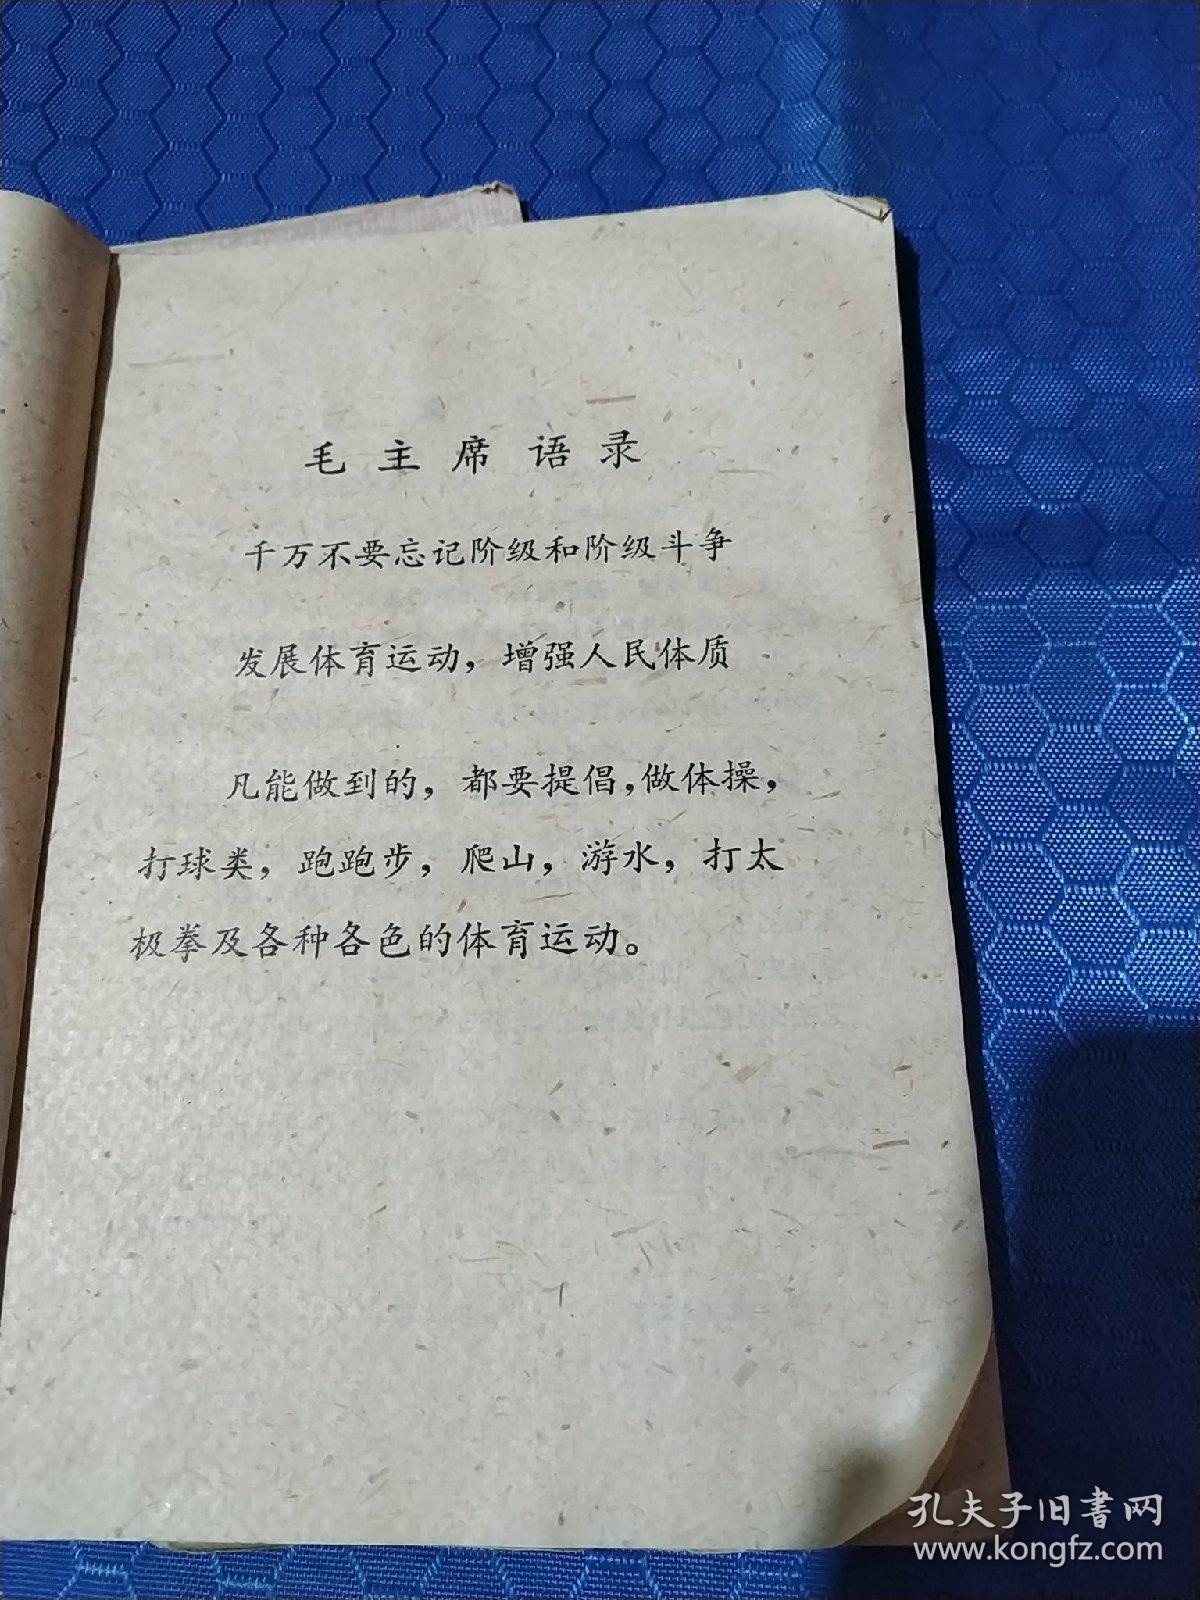 毛主席语录
千万不要忘记阶级和阶级斗争
发展体育运动，增强人民体质
凡能做到的，都要提倡，做体操，
打球类，跑跑步，爬山，游水，打太
极拳及各种各色的体育运动。
孔夫子旧書网
www.kongfz.com